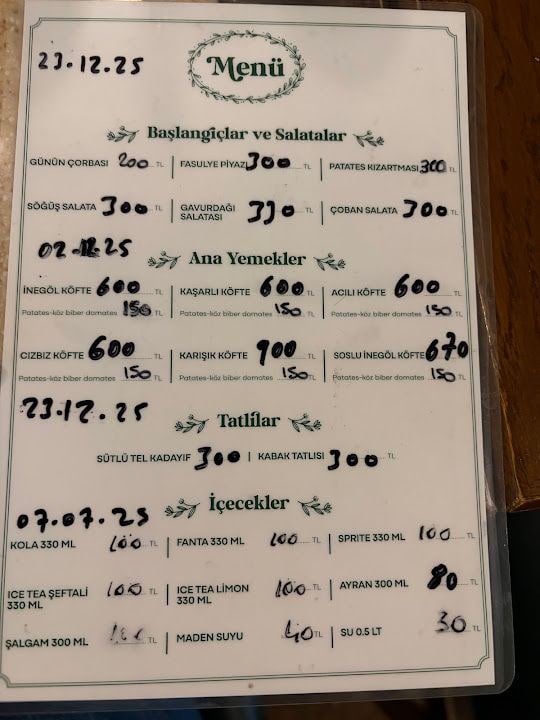 23.12.25
Menü
Başlangıçlar ve Salatalar
GÜNÜN ÇORBASI 200 TL | FASULYE PİYAZI 300 TL | PATATES KIZARTMASI 300 TL
SÖĞÜŞ SALATA 300 TL | GAVURDAĞI SALATASI 330 TL | ÇOBAN SALATA 300 TL
02.12.25
Ana Yemekler
İNEGÖL KÖFTE 600 TL | KAŞARLI KÖFTE 600 TL | ACILI KÖFTE 600 TL
Patates-köz biber domates 150 TL | Patates-köz biber domates 150 TL | Patates-köz biber domates 150 TL
CIZBIZ KÖFTE 600 TL | KARIŞIK KÖFTE 900 TL | SOSLU İNEGÖL KÖFTE 670
Patates-köz biber domates 150 TL | Patates-köz biber domates 150 TL | Patates-köz biber domates 150 TL
23.12.25
Tatlılar
SÜTLÜ TEL KADAYIF 300 | KABAK TATLISI 300 TL
İçecekler
07.07.25
KOLA 330 ML 100 TL | FANTA 330 ML 100 TL | SPRITE 330 ML 100 TL
ICE TEA ŞEFTALİ 330 ML 100 TL | ICE TEA LİMON 330 ML 100 TL | AYRAN 300 ML 80 TL
ŞALGAM 300 ML 100 TL | MADEN SUYU 40 TL | SU 0.5 LT 30 TL